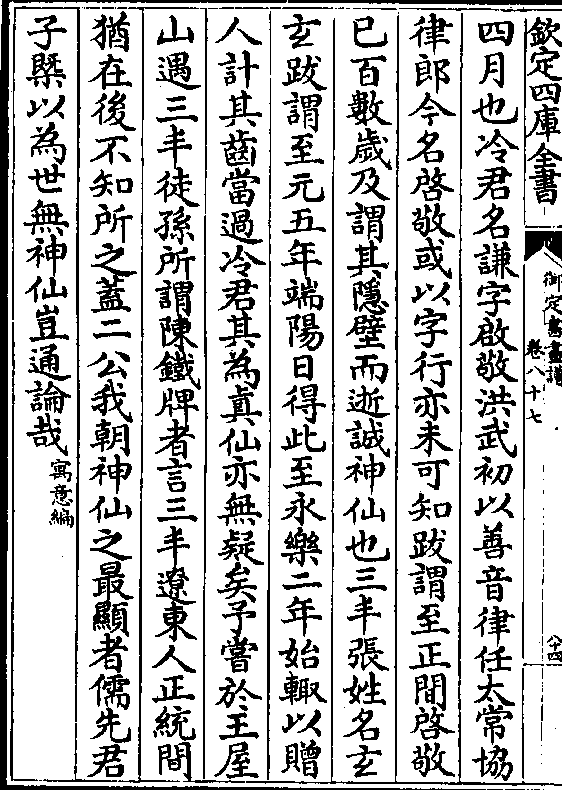 欽定四庫全書
御定書畫譜
卷八十七
八十四
四月也冷君名謙字啟敬洪武初以善音律任太常協
律郎今名啓敬或以字行亦未可知跋謂至正間啓敬
已百數歲及謂其隱壁而逝誠神仙也三丰張姓名玄
玄跋謂至元五年端陽日得此至永樂二年始輙以贈
人計其齒當過冷君其為真仙亦無疑矣予嘗於王屋
山遇三丰徒孫所謂陳鐵牌者言三丰遼東人正統間
猶在後不知所之蓋二公我朝神仙之最顯者儒先君
子槩以為世無神仙豈通論哉寓意編